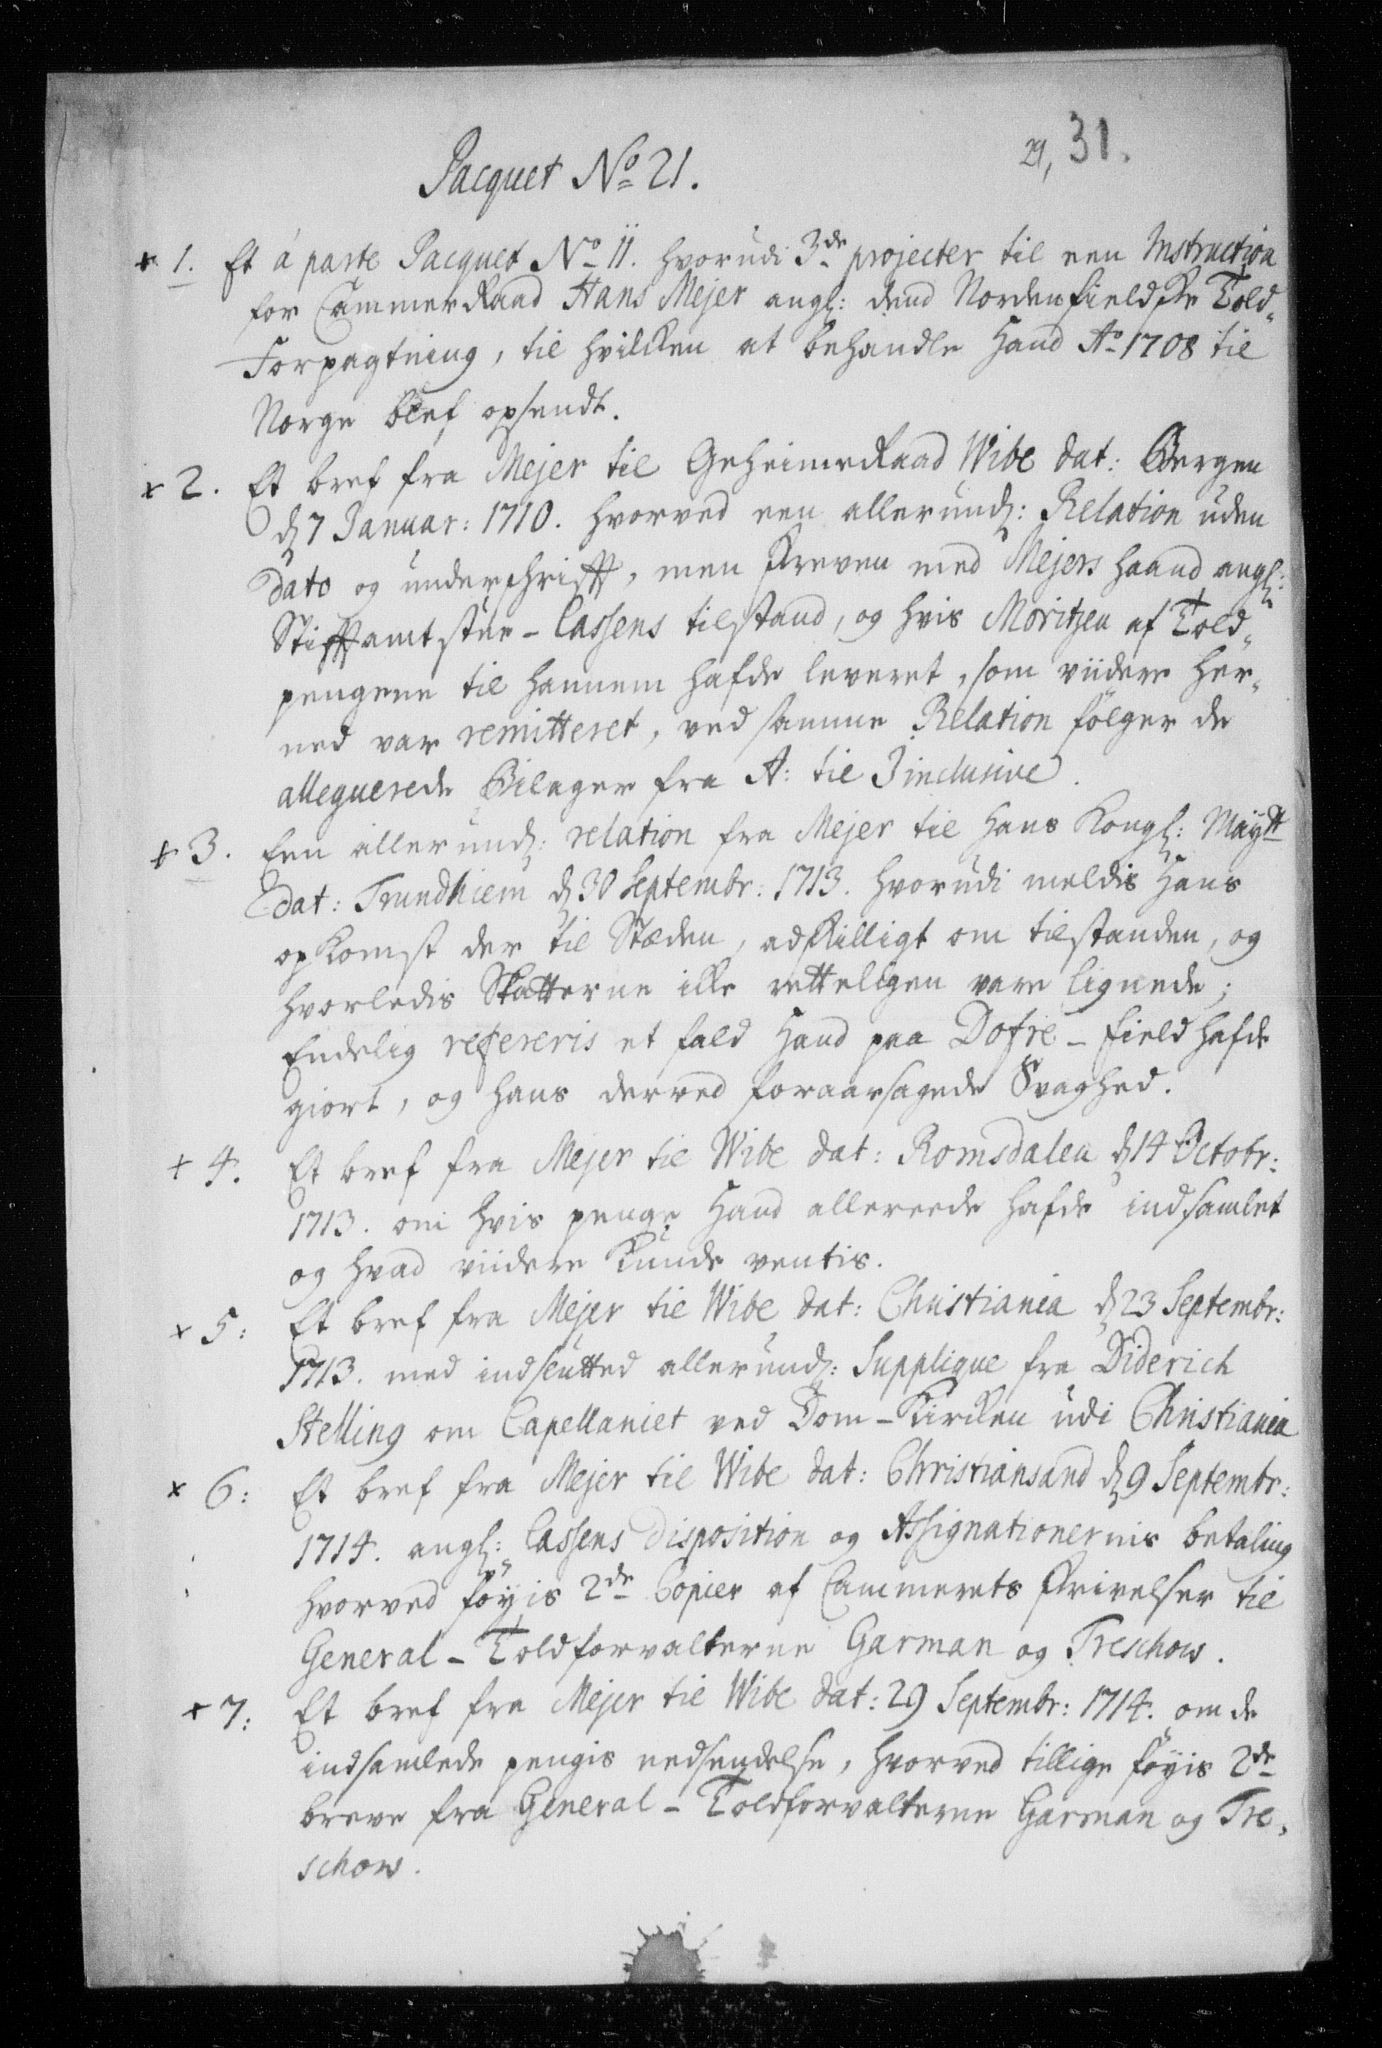 29, 31.
Pacquet No 21.
+ 1. Et á parte Pacquet No 11. hvorudi 3de projecter til een Instruction
for CammerRaad Hans Mejer angl: dend Nordenfieldske Told-
Forpagtning, til hvilken at behandle Hand Ao 1708 til
Norge blef opsendt.
+ 2. Et bref fra Mejer til GeheimeRaad Wibe dat: Bergen
d 7 Januar: 1710. hvorved een allerund: Relation uden
dato og underschrifft, men skreven med Mejers haand angl:
Stifftamtstue-Cassens tilstand, og hvis Moritzen af Told-
pengene til hannem hafde leveret, som viidere her-
ned var remitteret, ved samme Relation følger de
alleguerede Bilager fra A: til J inclusive.
+ 3. Een allerund: relation fra Mejer til Hans Kongl: Maytt
dat: Trundhiem d 30 Septembr: 1713. hvorudi meldis Hans
opkomst der til Stæden, adskilligt om tilstanden, og
hvorledis Skatterne ikke retteligen vare lignede;
Endelig refereris et fald Hand paa Dofre-field hafde
giort, og hans derved foraarsagede Svaghed.
+ 4. Et bref fra Mejer til Wibe dat: Romsdalen d 14 Octobr:
1713. om hvis penge Hand allereede hafde indsamlet
og hvad viidere kunde ventis.
+ 5: Et bref fra Mejer til Wibe dat: Christiania d 23 Septembr:
1713. med indslutted allerund: Supplique fra Diderich
Stelling om Capellaniet ved Dom-Kirken udi Christiania
+ 6: Et bref fra Mejer til Wibe dat: Christiansand d 9 Septembr:
1714. angl: Cassens disposition og Assignationernis betaling
hvorved føyis 2de Copier af Cammerets skrivelser til
General-Toldforvalterne Garman og Treschow.
+ 7: Et bref fra Mejer til Wibe dat: 29 Septembr: 1714. om de
indsamlede pengis nedsendelse, hvorved tillige føyis 2de
breve fra General-Toldforvalterne Garman og Tre-
schow.